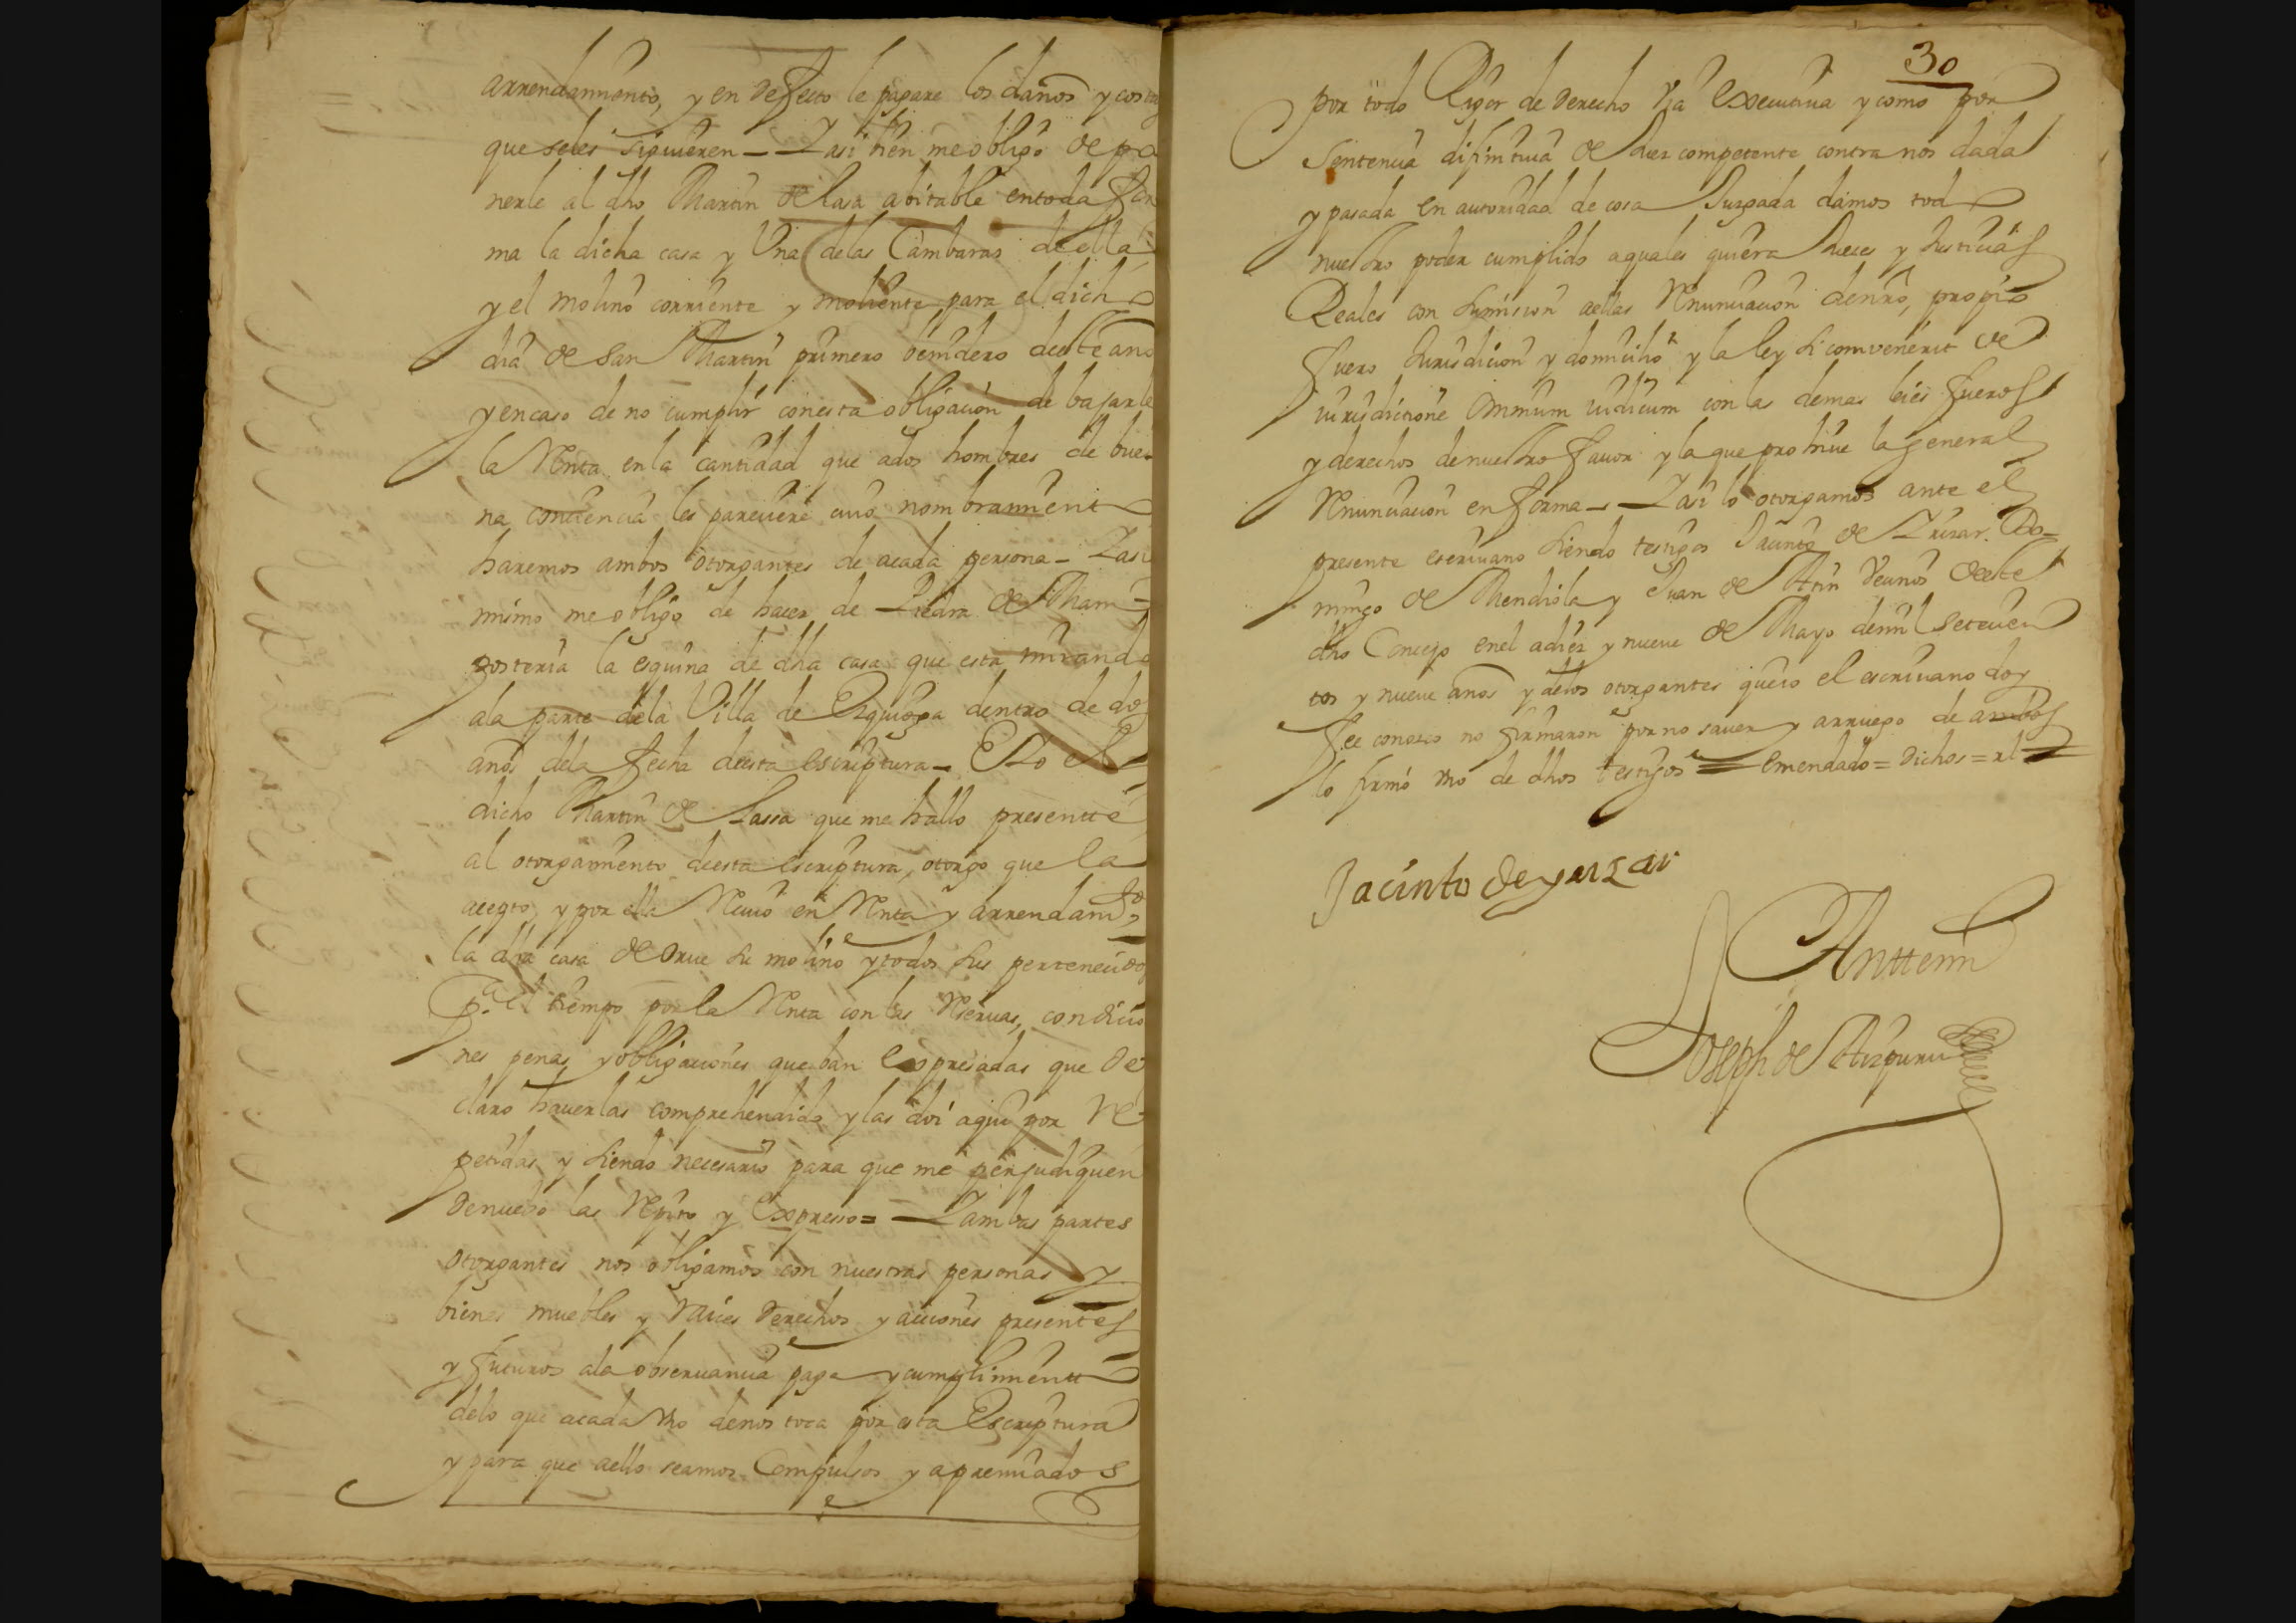 arrendamiento, y en defecto le pagare los daños y costas
que se les siguieren — Y asi bien me obligo de po
nerle al dho Martin de Lasa abitable en toda for
ma la dicha casa y Una de las Cambaras de ella
y el molino corriente y moliente para el dicho
dia de San Martin primero venidero deste año
y en caso de no cumplir con esta obligacion de bajarle
la Renta en la cantidad que a dos hombres de bue-
na conciencia les pareciere cuio nombramiento
haremos ambos otorgantes de a cada persona — Y asi
mimo me obligo de hacer de Piedra de Mam-
posteria la esquina de dha casa que esta mirando
a la parte de la Villa de Ezquioga dentro de dos
años de la fecha desta escriptura — E Yo el
dicho Martin de Lassa que me hallo presentte
al otorgamiento desta escriptura, otorgo que la
acepto, y por ella Recivo en Renta y arrendamto
la dha casa de Orue su molino y todos sus pertenecidos
pa el tiempo por la Renta con las Reservas, condicio
nes penas y obligaciones que ban expresadas que de
claro haverlas comprehendido y las doi aqui por Re-
petidas y siendo necesario para que me perjudiquen
de nuebo las Repito y Expresso = Y ambas partes
otorgantes nos obligamos con nuestras personas y
bienes muebles y Raices derechos y acciones presentes
y futuros a la observancia paga y cumplimientto
de lo que a cada Uno de nos toca por esta Escriptura
y para que a ello seamos Compulsos y apremiados
30
por todo Rigor de derecho Via Executiva y como por
Sentencia difinitiva de Juez competente contra nos dada
y pasada en autoridad de cosa Juzgada damos todo
nuestro poder cumplido a quales quiera Jueces y Justicias
Reales con sumision a ellas Renunciacion de nro, propio
fuero Jurisdicion y domicilio y la ley si convenerit de
iurisdictione Omnium iudicum con las demas leies fueros
y derechos de nuestro favor y la que prohive la general
Renunciacion en forma — Y asi lo otorgamos ante el
presente escrivano siendo testigos Jacinto de Yrizar. Do-
mingo de Mendiola y Juan de Atin Vecinos deste
dho Concejo en el a diez y nueve de Mayo de mil setecien
tos y nueve años y a los otorgantes que io el escrivano doy
fee conozco no firmaron por no saver y a rruego de ambos
lo firmó Uno de dhos testigos = emendado = dichos = xl =
Jacinto de yrizar
Antte mi
Joseph de Aizpuru